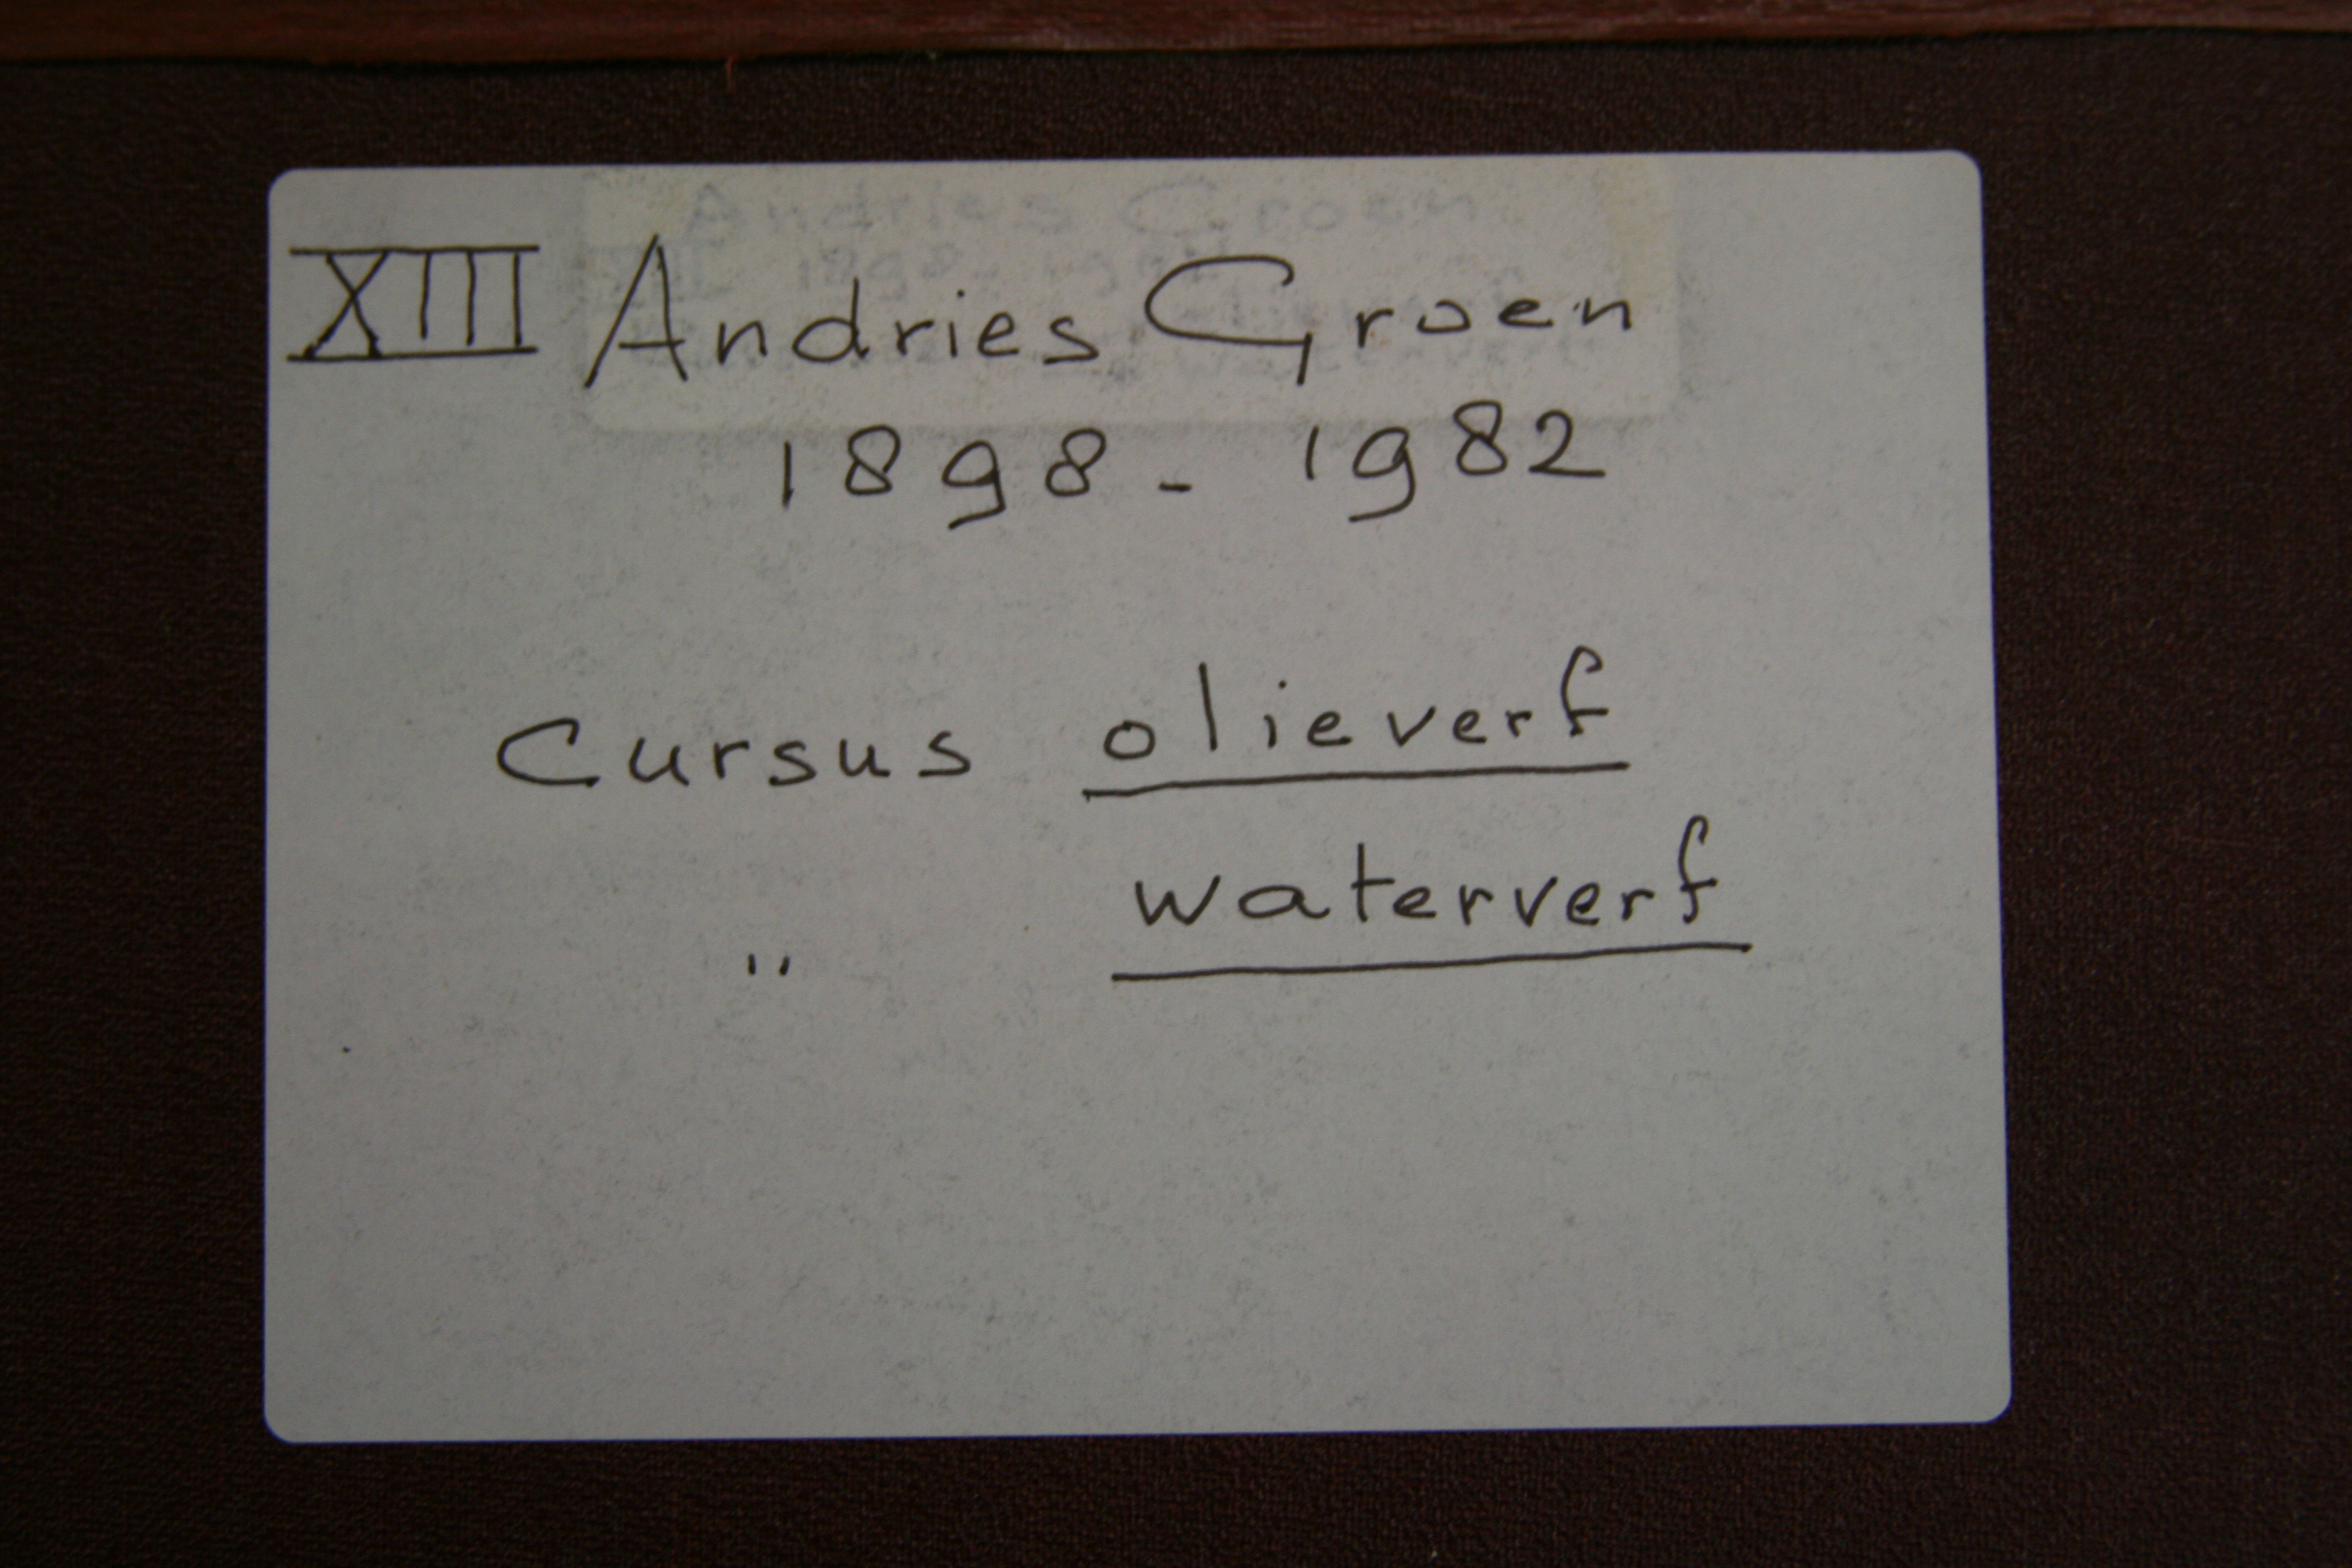 XIII Andries Groen
1898 - 1982
Cursus olieverf
" waterverf